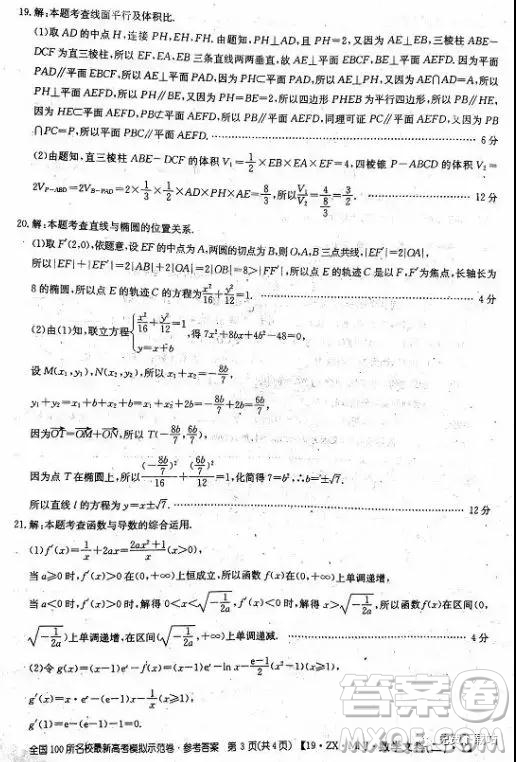 19. 解:本题考查线面平行及体积比.
(1)取 AD 的中点 H,连接 PH,EH,FH. 由题知,PH⊥AD,且 PH=2,又因为 AE⊥EB,三棱柱 ABE-
DCF 为直三棱柱,所以 EF、EA、EB 三条直线两两垂直,故 AE⊥平面 EBCF,BE⊥平面 AEFD. 因为平面
PAD∥平面 EBCF,所以 AE⊥平面 PAD. 因为 PH⊂平面 PAD,所以 AE⊥PH,又因为 AE∩AD=A,所以
PH⊥平面 AEFD,所以 PH∥BE,又因为 PH=BE=2,所以四边形 PHEB 为平行四边形,所以 PB∥HE,
因为 HE⊂平面 AEFD,PB⊄平面 AEFD,所以 PB∥平面 AEFD,同理可证 PC∥平面 AEFD,又因为 PB
∩PC=P,所以平面 PBC∥平面 AEFD. 6 分
(2)由题知,直三棱柱 ABE-DCF 的体积 V₁=1/2×EB×EA×EF=4,四棱锥 P-ABCD 的体积 V₂=
2V_{P-ABD}=2V_{B-PAD}=2×1/3×1/2×AD×PH×AE=8/3,所以V₁/V₂=4/(8/3)=3/2. 12 分
20. 解:本题考查直线与椭圆的位置关系.
(1)取 F′(2,0),依题意,设 EF 的中点为 A,两圆的切点为 B,则 O、A、B 三点共线,|EF′|=2|OA|,
所以|EF|+|EF′|=2|AB|+2|OA|=2|OB|=8>|FF′|,所以点 E 的轨迹 C 是以 F、F′为焦点,长轴长为
8 的椭圆,所以点 E 的轨迹 C 的方程为x²/16+y²/12=1. 4 分
(2)由(1)知,联立方程{x²/16+y²/12=1, y=x+b},得 7x²+8bx+4b²-48=0,
设 M(x₁,y₁),N(x₂,y₂),所以 x₁+x₂=-8b/7,
y₁+y₂=x₁+b+x₂+b=x₁+x₂+2b=-8b/7+2b=6b/7,
因为OT=OM+ON,所以 T(-8b/7,6b/7),
因为点 T 在椭圆上,所以(-8b/7)²/16+(6b/7)²/12=1,化简得 7=b²,∴b=±√7.
所以直线 l 的方程为 y=x±√7. 12 分
21. 解:本题考查函数与导数的综合运用.
(1)f′(x)=1/x+2ax=(2ax²+1)/x(x>0),
当 a≥0 时,f′(x)>0 在(0,+∞)上恒成立,所以函数 f(x)在(0,+∞)上单调递增,
当 a<0 时,f′(x)>0 时,解得 0<x<√(-1/2a),f′(x)<0 时,解得 x>√(-1/2a),所以函数 f(x)在区间(0,
√(-1/2a))上单调递增,在区间(√(-1/2a),+∞)上单调递减. 4 分
(2)令 g(x)=xf(x)=eˣ-lnx-(e-1)/2(x²-1)(x≥1),
g′(x)=eˣ-(e-1)x-1/x(x≥1),
g′(1)=e-(e-1)-1=0.
全国 100 所名校最新高考模拟示范卷·参考答案 第 3 页(共 4 页)